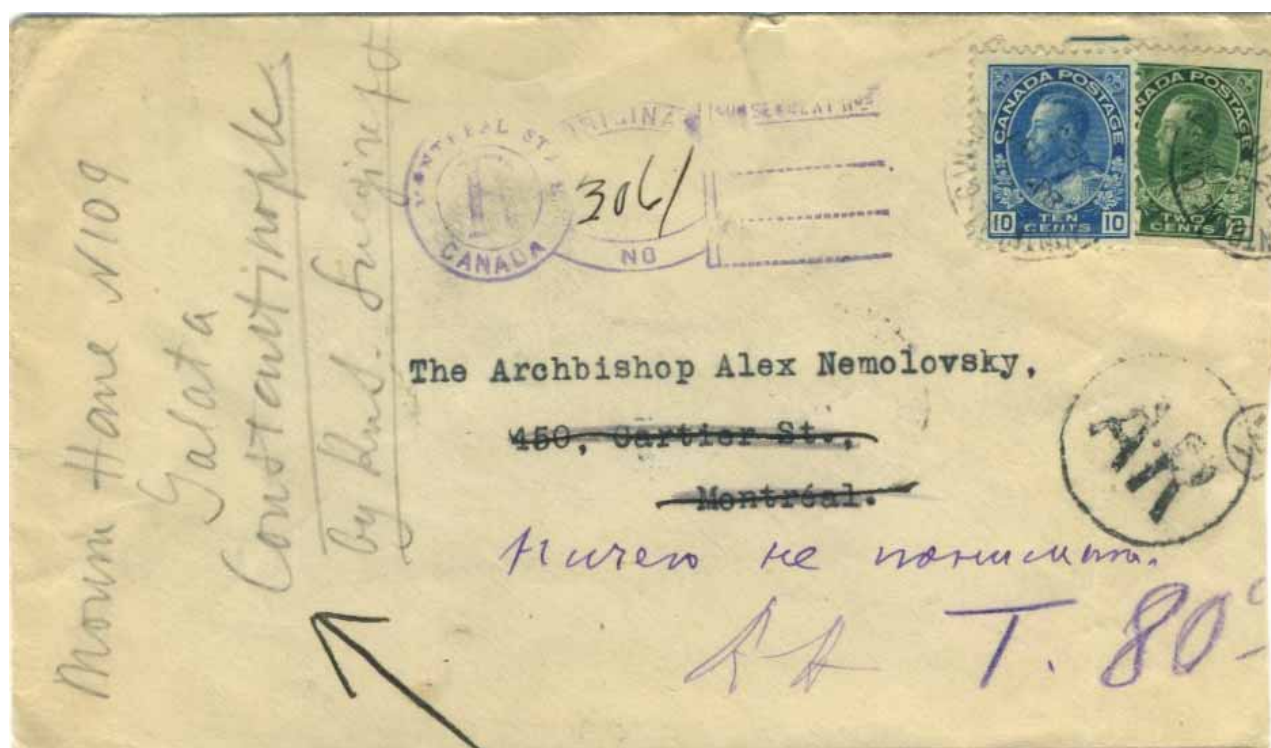 Moum Hane N 109
Galata
Constantinople
by
MONTREAL
CANADA
ORIGINAL
3061
NO
SUBSEQUENT NOS
CANADA POSTAGE
10 TEN CENTS 10
CANADA POSTAGE
TWO CENTS 2
The Archbishop Alex Nemolovsky,
450, Cartier St.,
Montréal.
AR
Ничего не понимаю.
T. 80c